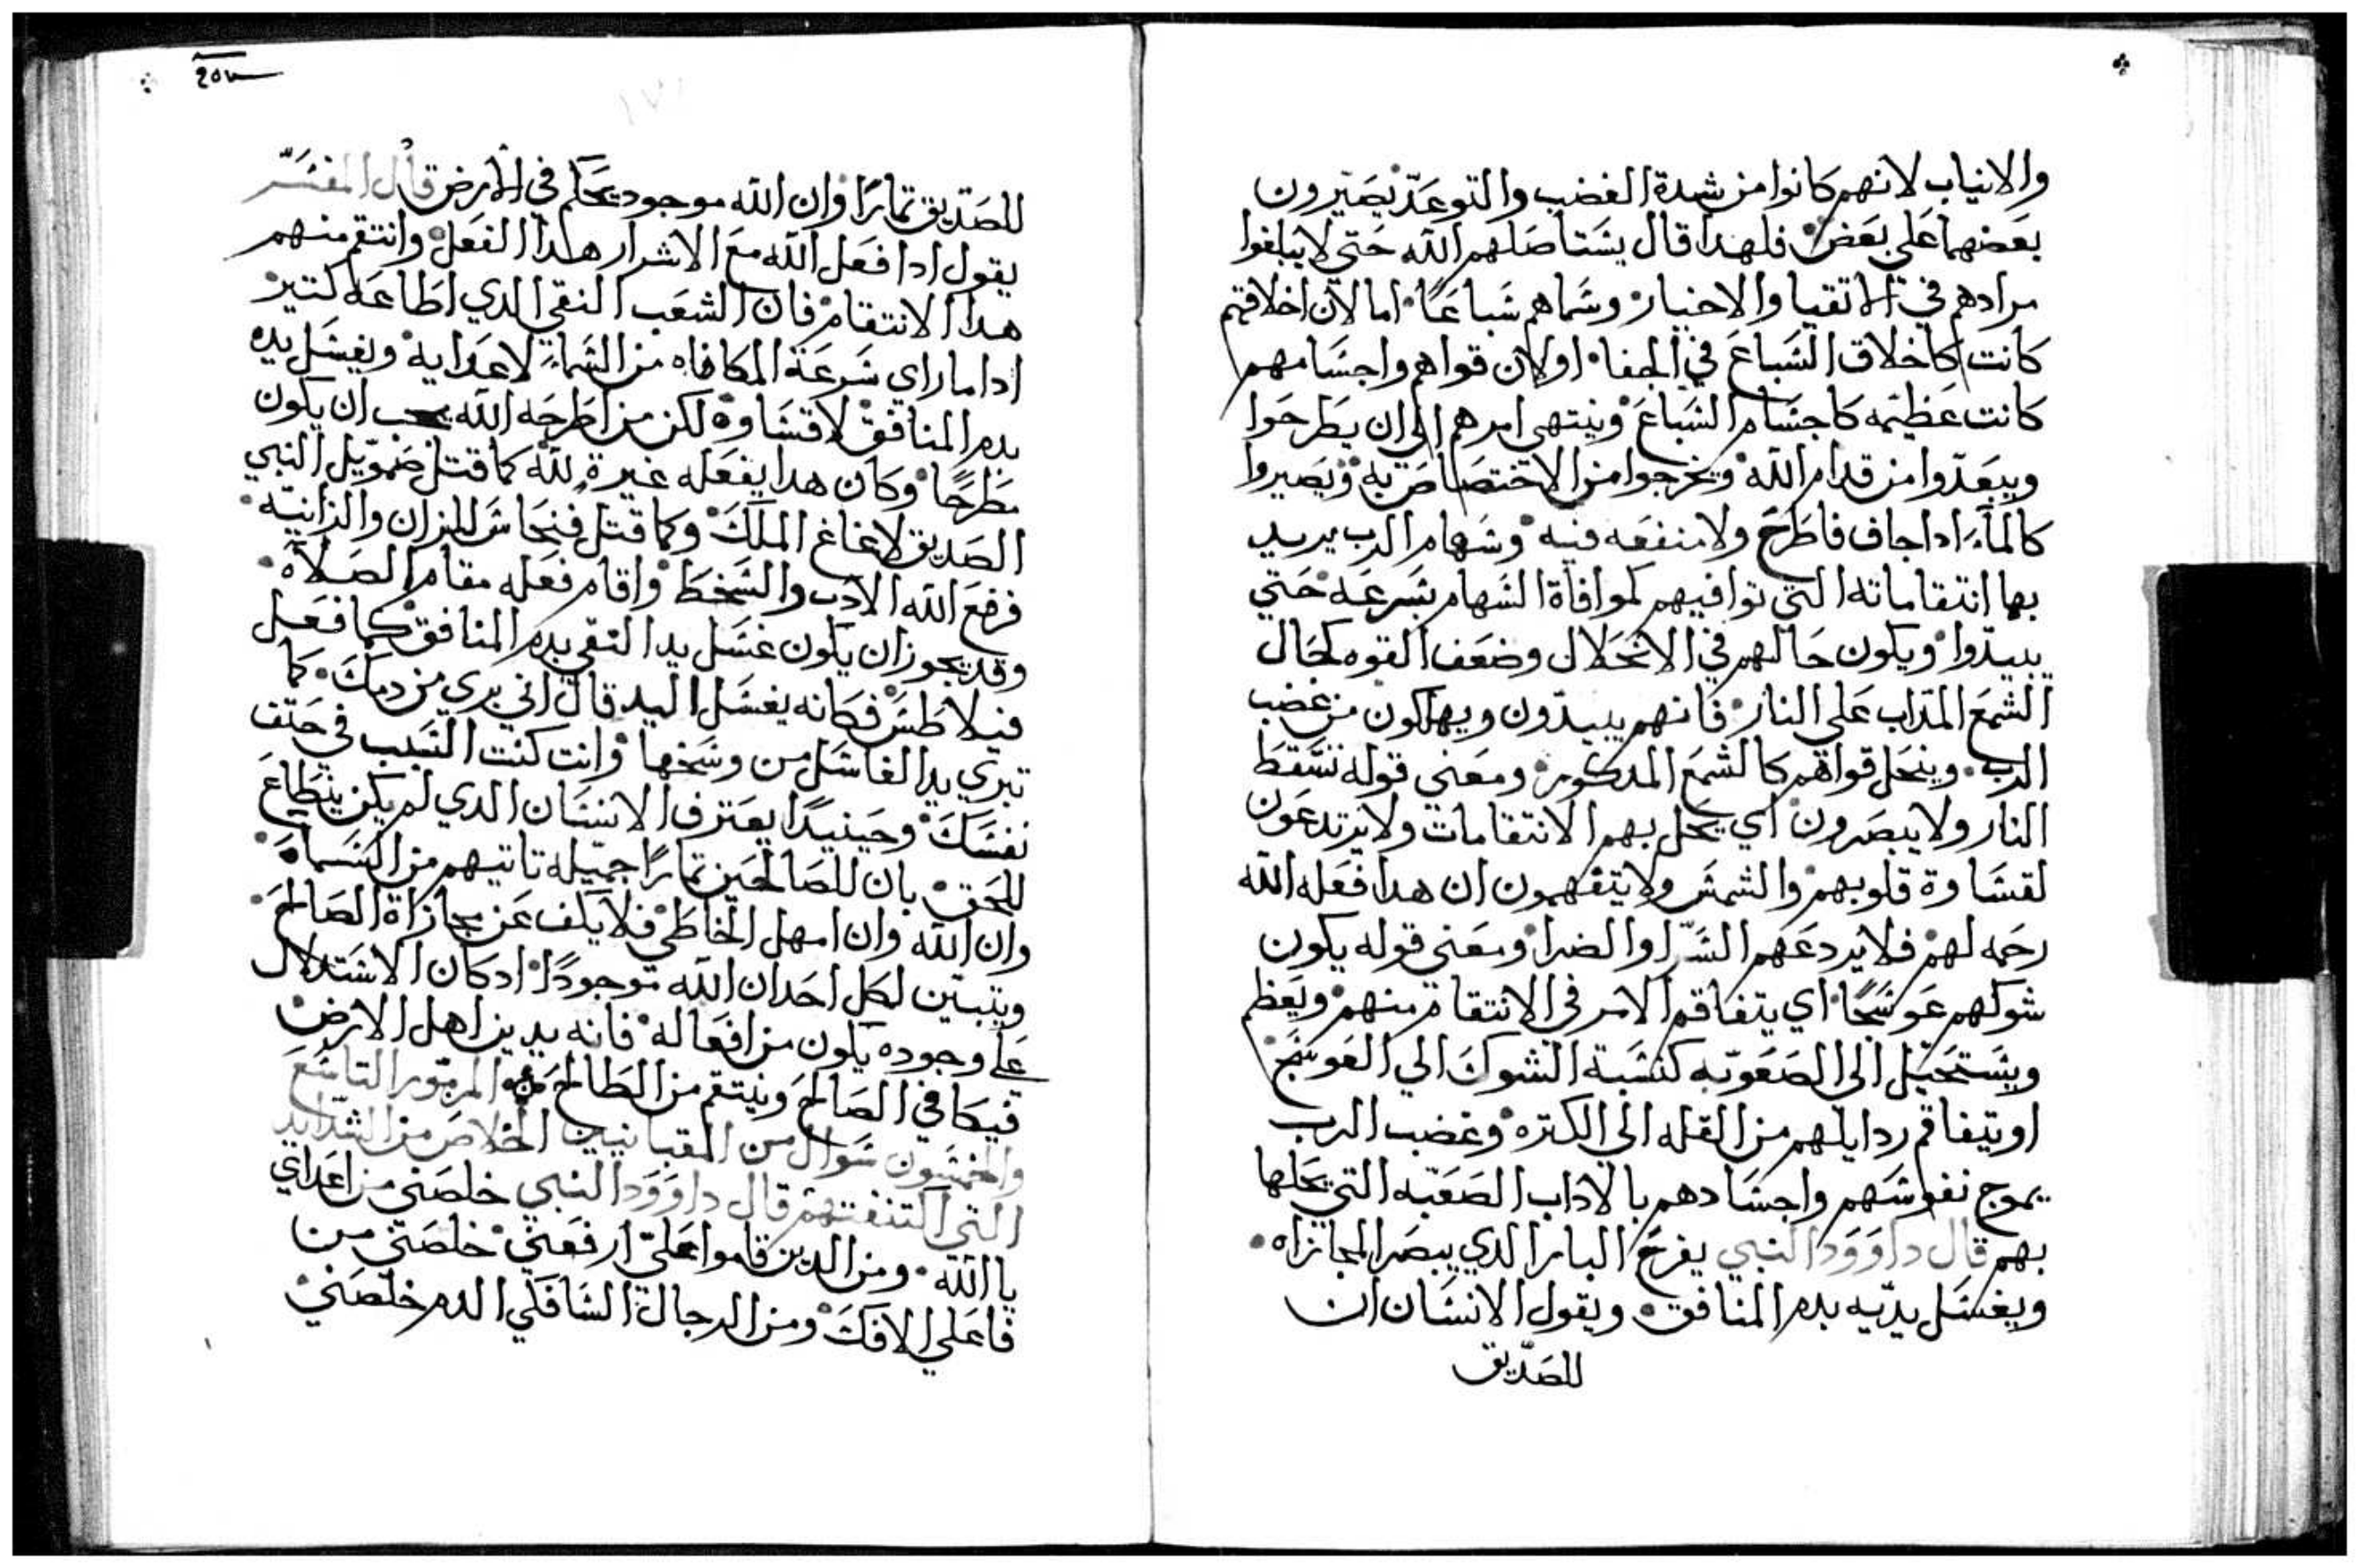 والانياب لانهم كانوا من شدة الغضب والتوعد يصيرون
بعضهما على بعض فلهدا قال يستاصلهم الله حتي لا يبلغوا
مرادهم في الاتقيا والاخيار وسماهم سباعًا اما لان اخلاقهم
كانت كاخلاق السباع في الجفا اولان قواهم واجسامهم
كانت عظيمه كاجسام السباع وينتهي امرهم الى ان يطرحوا
ويبعدوا من قدام الله ويخرجوا من الاختصاص به ويصيروا
كالماء ادا جاف فاطرح ولا منفعه فيه وسهام الرب يريد
بها انتقاماته التي توافيهم كموافاة السهام بسرعه حتي
يبيدوا ويكون حالهم في الانحلال وضعف القوه كحال
الشمع المداب على النار فانهم يبيدون ويهلكون من غضب
الرب وينحل قواهم كالشمع المدكور ومعني قوله تسقط
النار ولا يبصرون اي يحل بهم الانتقامات ولا يرتدعون
لقساوة قلوبهم والشمس ولا يتفهمون ان هدا فعله الله
رحمه لهم فلا يردعهم السرا والضرا ومعني قوله يكون
شوكهم عوسجًا اي يتفاقم الامر في الانتقام منهم ويعظم
ويستحيل الى الصعوبه كنسبة الشوك الي العوسج
او يتفاقم ردايلهم من القله الي الكتره وغضب الرب
يموج نفوسهم واجسادهم بالاداب الصعبه التي يحلها
بهم قال داوود النبي يفرح البار الدي يبصر المجازاه
ويغسل يديه بدم المنافق ويقول الانسان ان
للصديق
٢٥٧
للصديق تمارًا وان الله موجود يحكم في الارض قال المفسر
يقول ادا فعل الله مع الاشرار هدا الفعل وانتقم منهم
هدا الانتقام فان الشعب النقي الدي اطاعه كتير
ادا ما راي سرعة المكافاه من السماء لاعدايه ويغسل يده
بدم المنافق لا قساوة لكن من اطرحه الله يجب ان يكون
مطرحًا وكان هدا يفعله غيرة لله كما قتل صموييل النبي
الصديق لاغاغ الملك وكما قتل فنحاس للزان والزانيه
فرفع الله الادب والسخط واقام فعله مقام الصلاة
وقد يجوز ان يكون غسل يد النقي بدم المنافق كما فعل
فيلاطس فكانه يغسل اليد قال اني بري من دمك كما
تبري يد الغاسل من وسخها وانت كنت السبب في حتف
نفسك وحينيدًا يعترف الانسان الدي لم يكن ينطاع
للحق بان للصالحين تمارًا جميله تاتيهم من السماء
وان الله وان امهل الخاطي فلا يكف عن مجازاة الصالح
ويتبين لكل احد ان الله موجودًا ادكان الاستدلال
على وجوده يكون من افعاله فانه يدين اهل الارض
فيكافي الصالح وينتقم من الطالح المزمور التاسع
والخمسون سوال من المقبانيين الخلاص من الشدايد
التي اكتنفتهم قال داوود النبي خلصني من اعداي
يا الله ومن الدين قاموا علي ارفعني خلصني من
فاعلي الافك ومن الرجال السافكي الدم خلصني